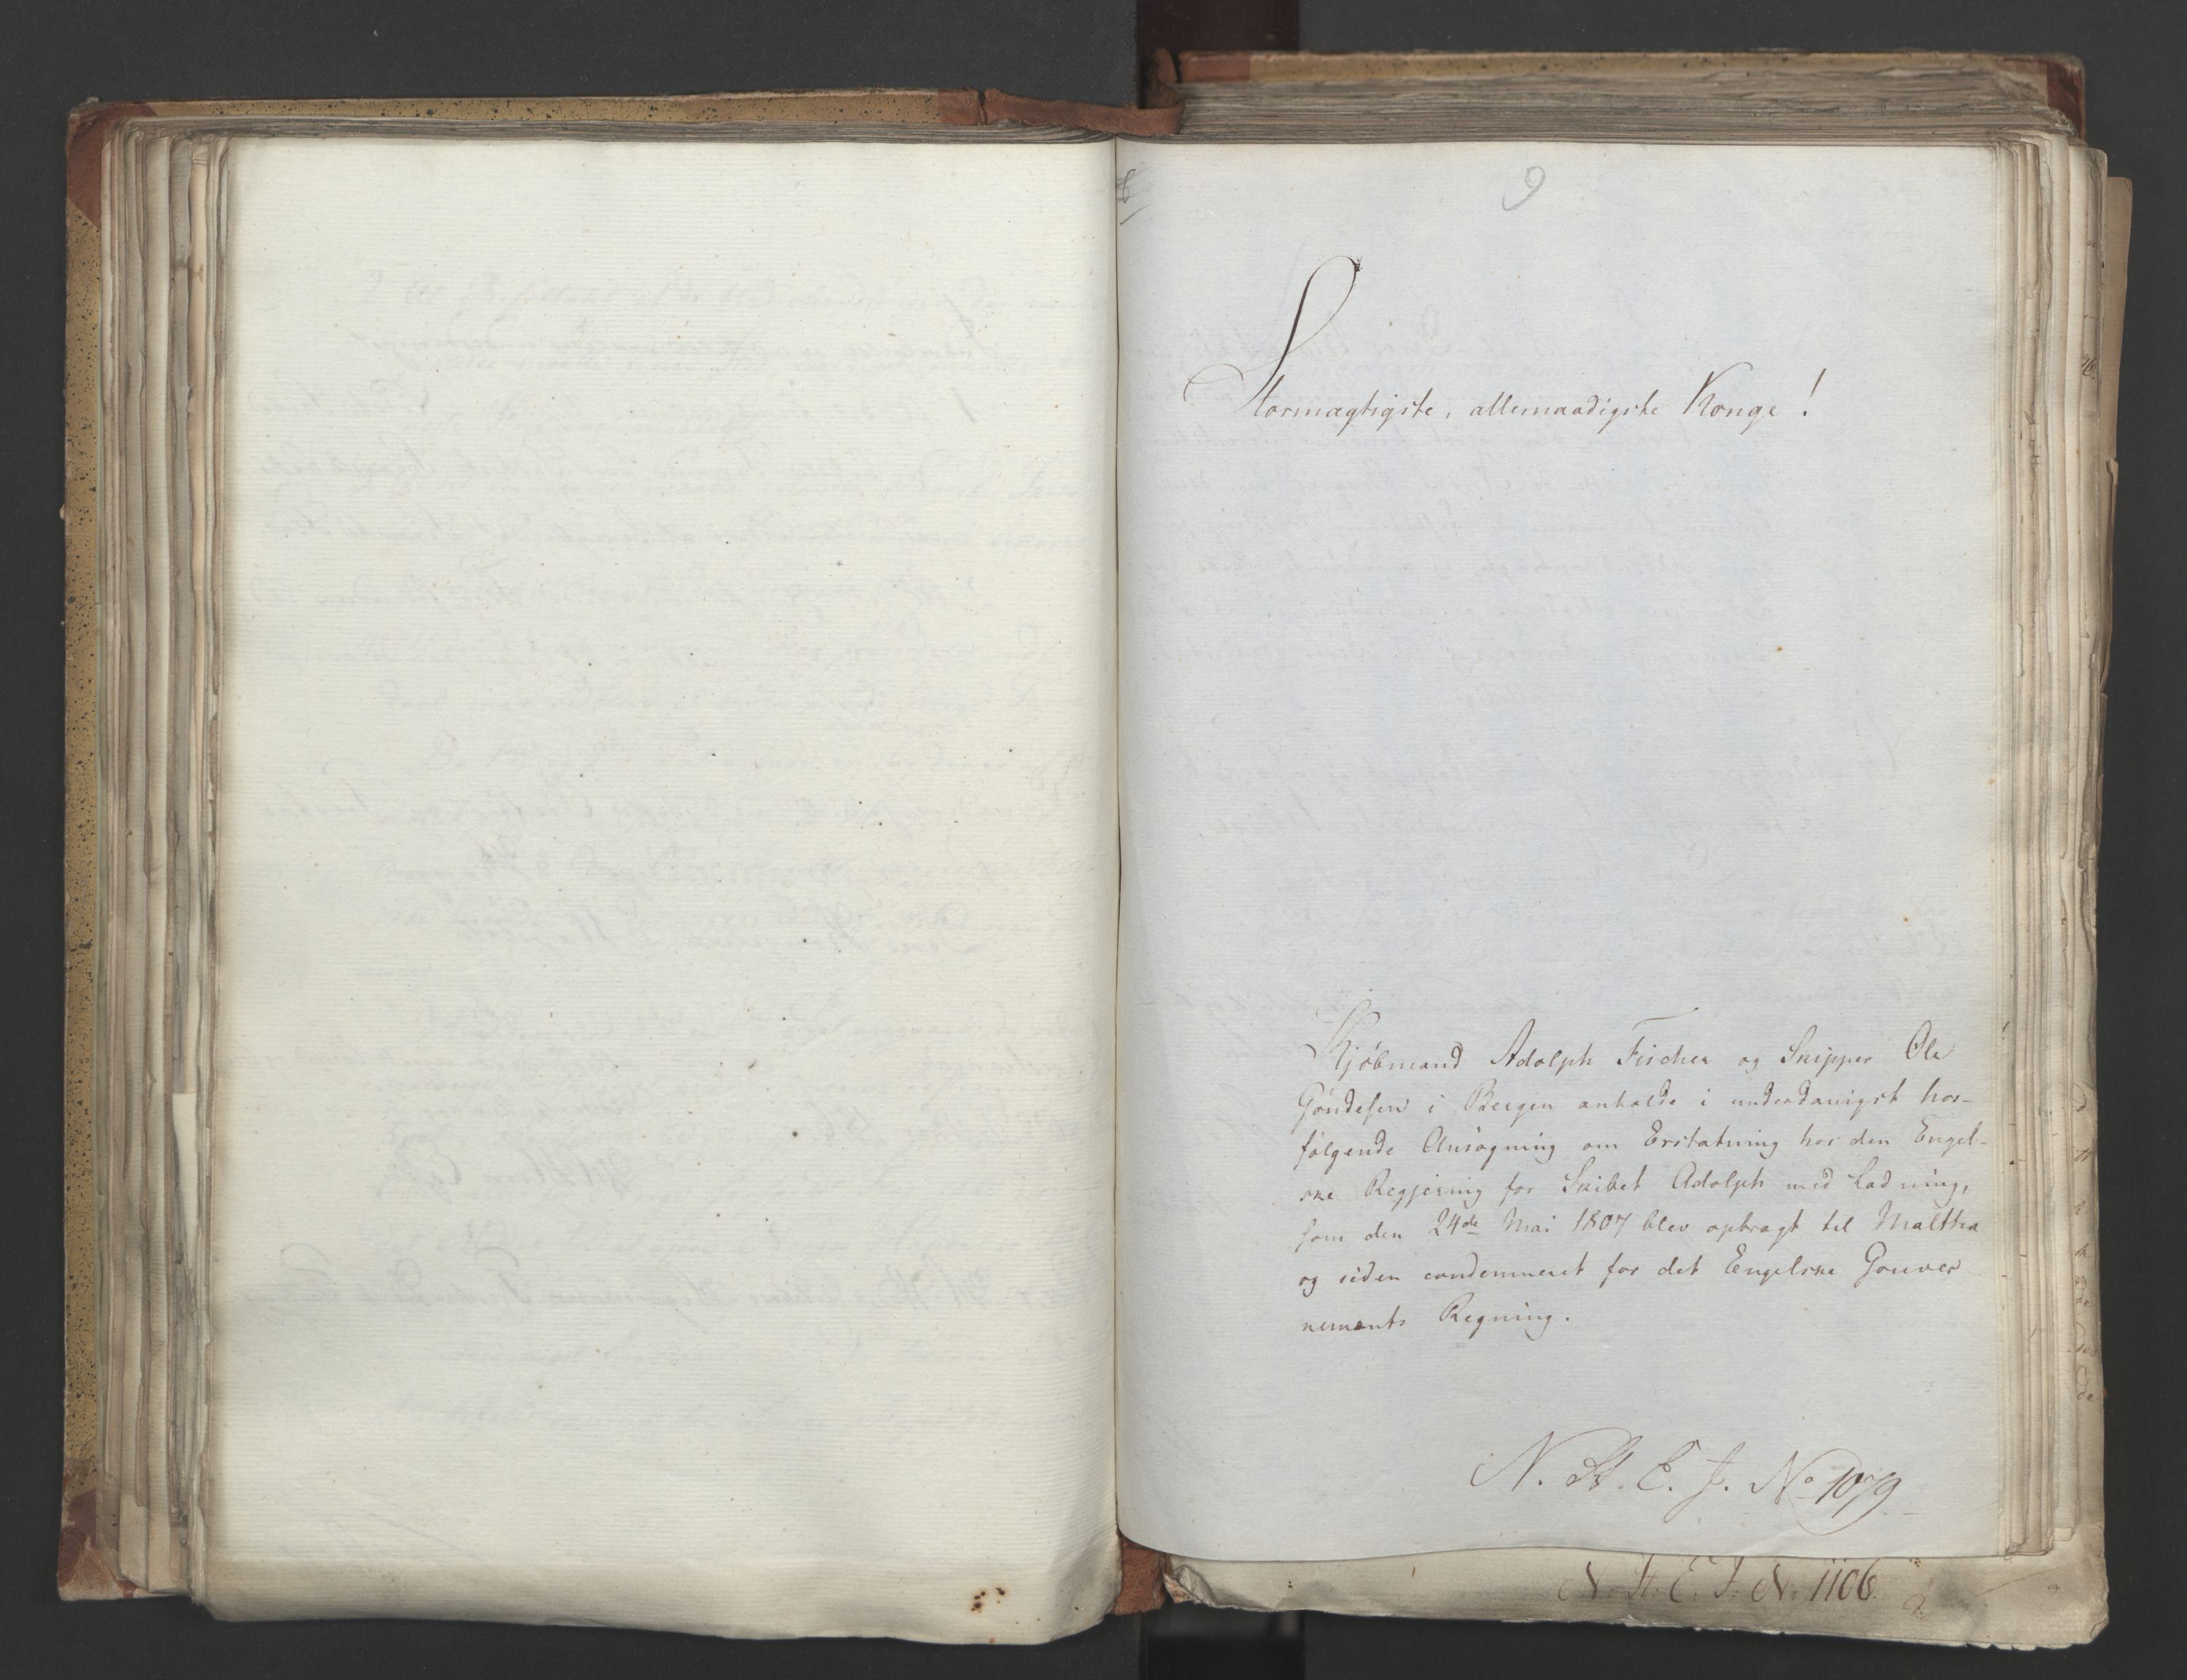 9
Stormægtigste, allernaadigste Konge!
Kjöbmand Adolph Fischer og Skipper Ole
Göndesen i Bergen anholde i underdanigst hos-
fölgende Ansögning om Erstatning hos den Engel-
ske Regjering for Skibet Adolph med Ladning,
som den 24de Mai 1807 blev opbragt til Maltha
og siden condemneret for det Engelske Gouver
nements Regning.
N. St. E. J. No 1079.
N. St. E. J. N. 1106.